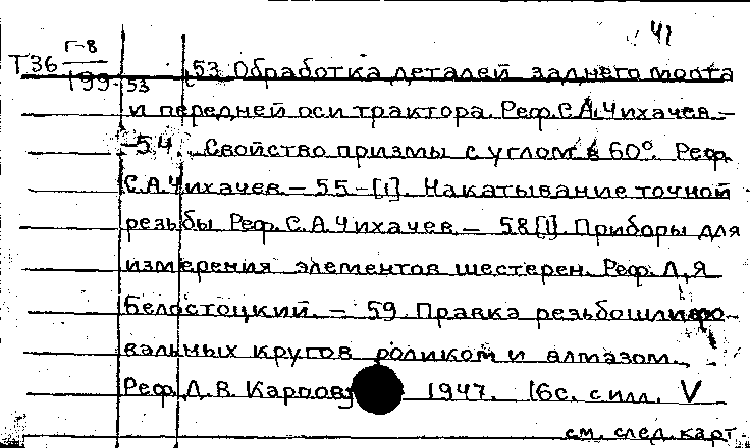 42
Т36 Г-8/199-53 53 Обработка деталей заднего моста
и передней оси трактора. Реф. С.А. Чихачев. –
– 54. Свойство призмы с углом в 60°. Реф.
С.А. Чихачев. – 55-[1]. Накатывание точной
резьбы Реф. С.А. Чихачев. – 58[1]. Приборы для
измерения элементов шестерен. Реф. Л.Я
Белостоцкий. – 59. Правка резьбошлифо-
вальных кругов роликом и алмазом.
Реф. Д.В. 1947. 16с. с илл. V
см. след. карт